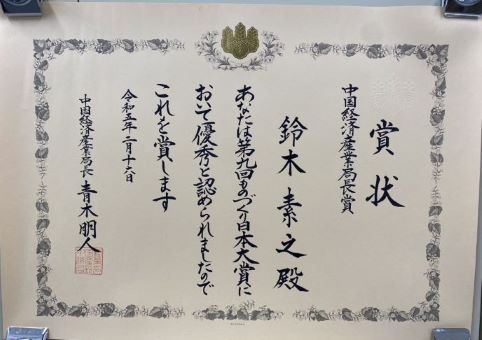 賞状
中国経済産業局長賞
鈴木素之殿
あなたは第九回ものづくり日本大賞に
おいて優秀と認められましたので
これを賞します
令和五年二月十六日
中国経済産業局長 青木朋人